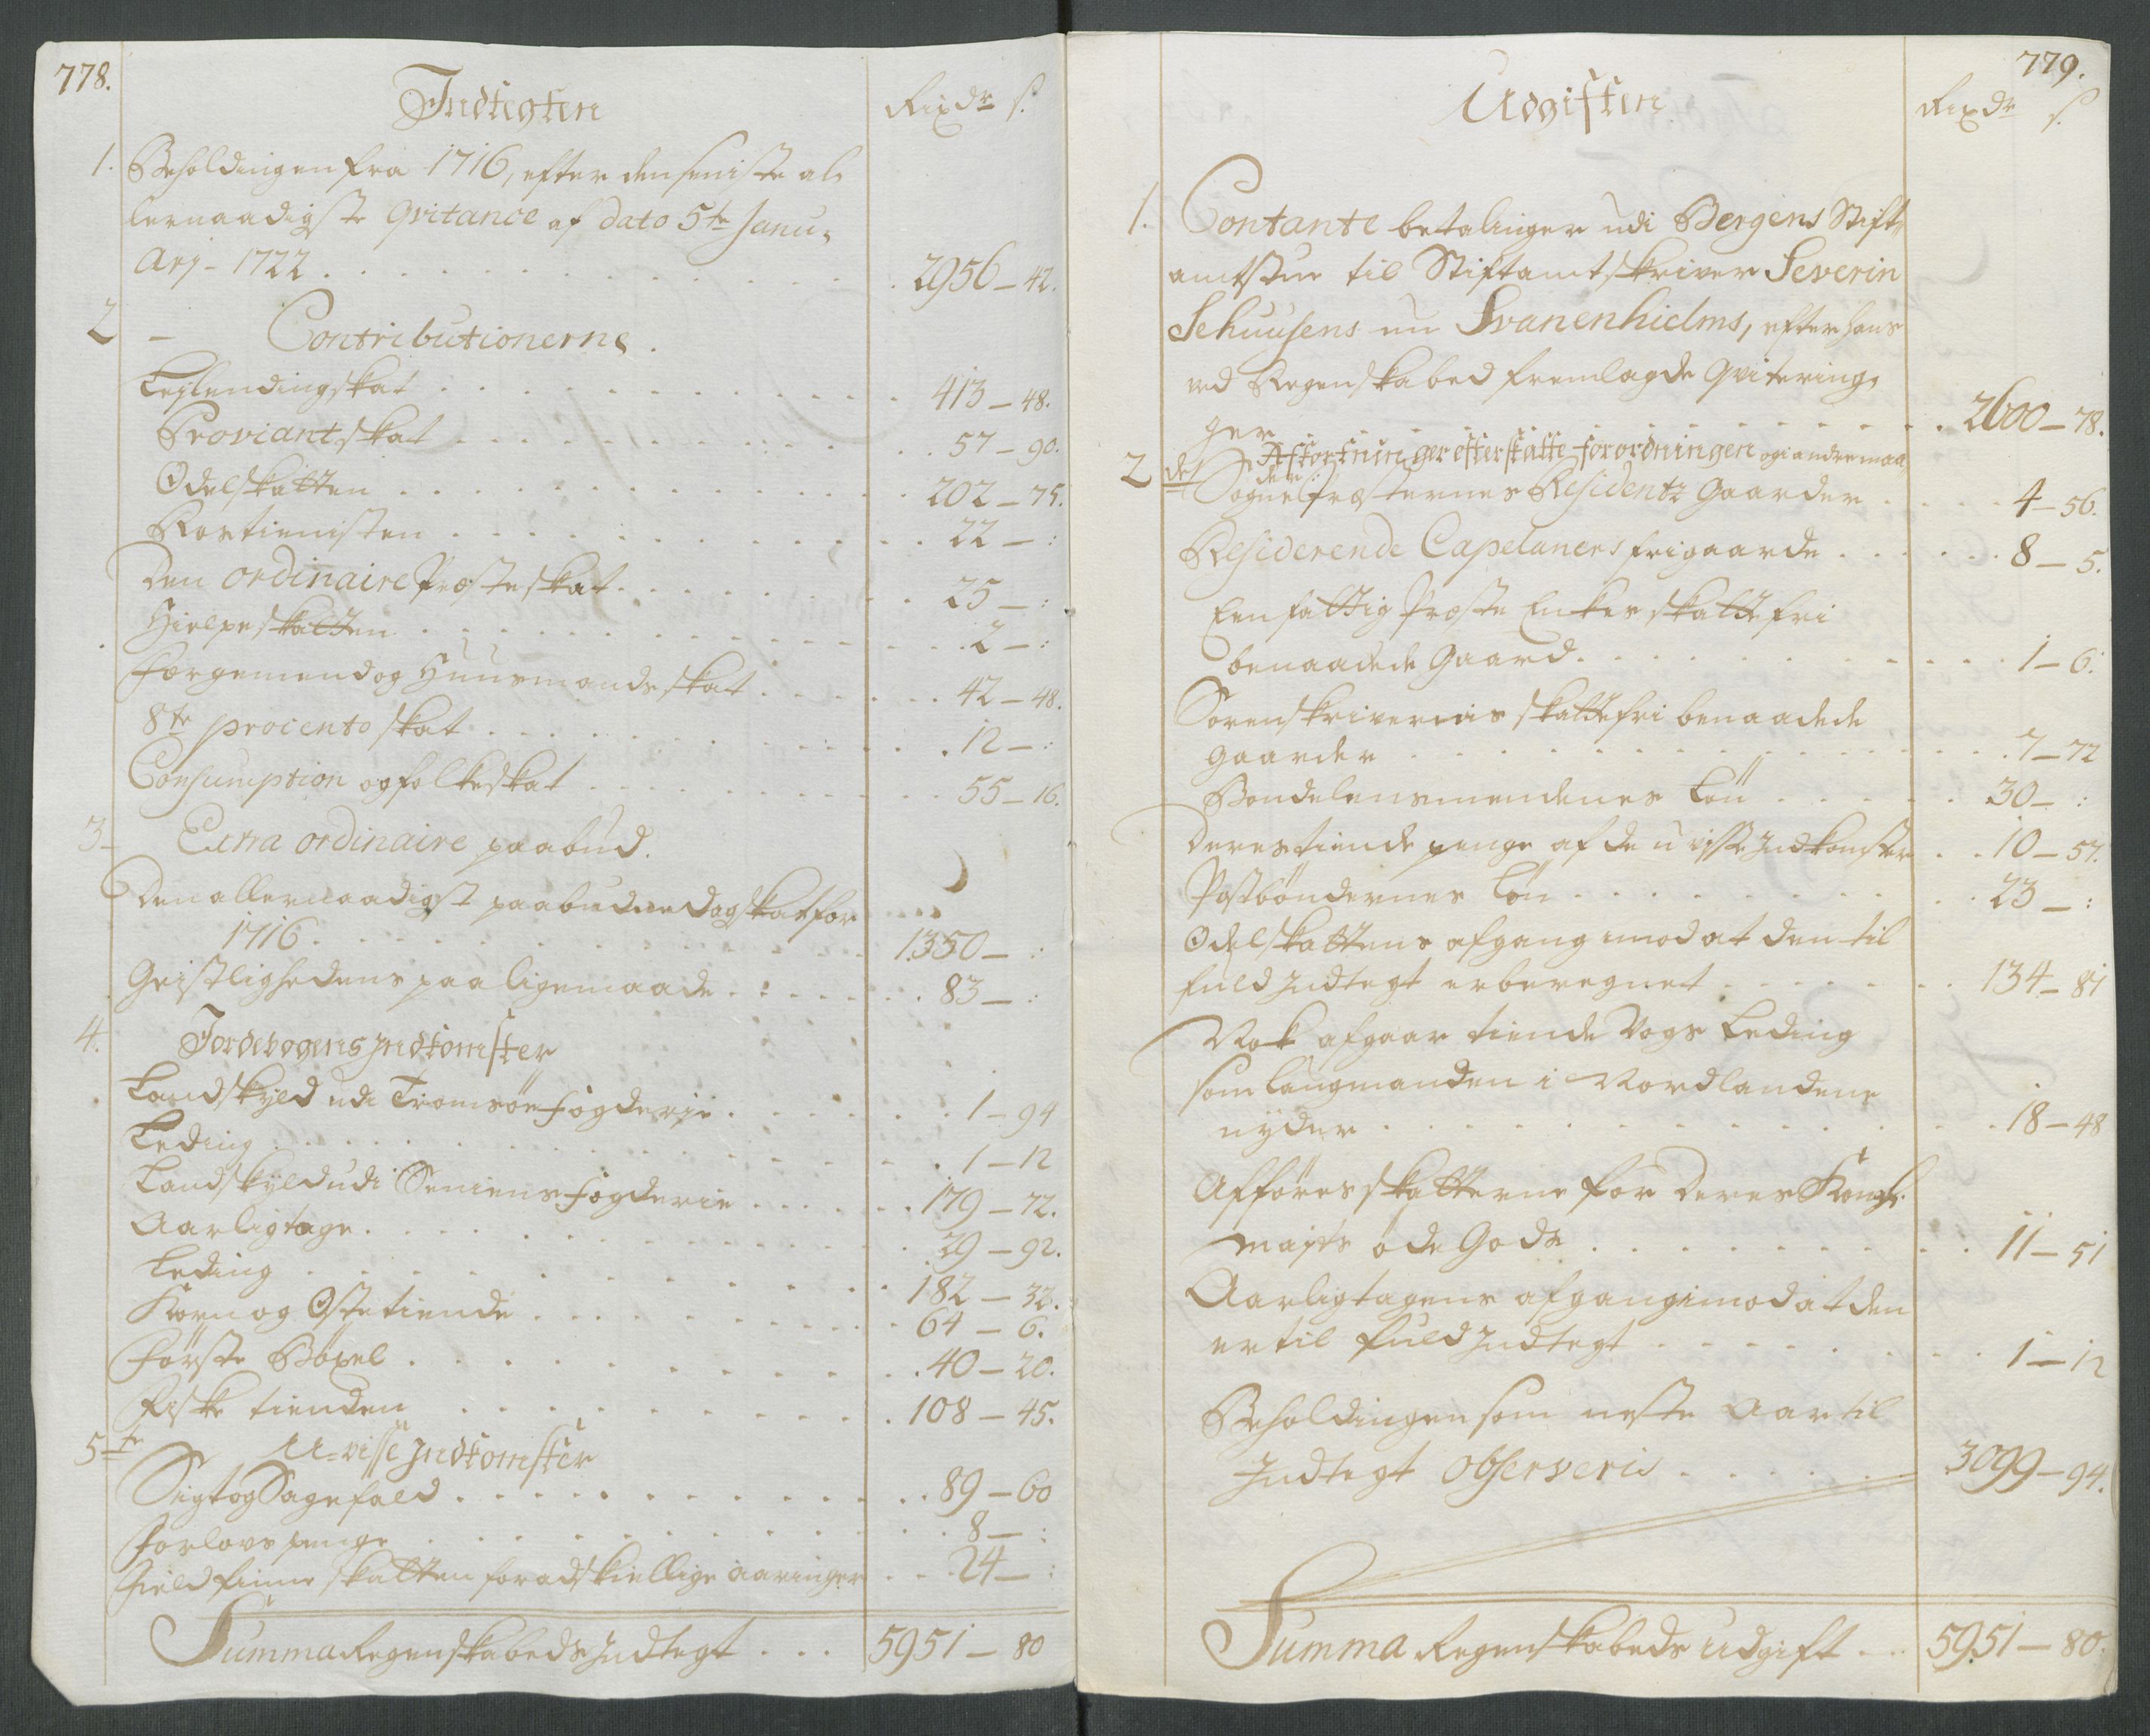 778.
Indtegten
Rixdr s.
1. Beholdingen fra 1716, efter den seniste al
lernaadigste qvitance af dato 5te Janu,
Arj - 1722 . . . 2956 – 42.
2 – Contributionerne.
Leylendingskat . . . 413 – 48.
Proviantskat . . . 57 – 90.
Odelskatten . . . 202 – 75.
Rostienisten . . . 22 – :
Den ordinaire Præsteskat . . . 25 – :
Hielpeskatten . . . 2 – :
Forgemend og Huusmandskat . . . 42 – 48.
8te procento skat . . . 12 – :
Consumption og folkeskat . . . 55 – 16.
3 – Extra ordinaire paabud.
Den allernaadigst paabudne dagskat for
1716 . . . 1350 – :
Geistlighedens paa ligemaade . . . 83 – :
4. Jordebogens Indkomster
Landskyld udi Tromsöe Fogderie . . . 1 – 94
Leding . . . 1 – 12
Landskyld udi Seniens Fogderie . . . 179 – 72.
Aarligtage . . . 29 – 92.
Leding . . . 182 – 32.
Korn og Ostetiende . . . 64 – 6.
Förste Böxel . . . 40 – 20.
Fiske tienden . . . 108 – 45.
5te U-visse Indkomster
Sigt og Sagefald . . . 89 – 60
Forlovs penge . . . 8 – :
Fieldfinne skatten for adskiellige aaringer . . . 24 – :
Summa Regenskabeds Indtegt . . . 5951 – 80
779.
Udgiften
Rixdr s.
1. Contante betalinger udi Bergens Stift,
amtstue til Stiftamtskriver Severin
Sehuusens nu Svanenhielms, efter hans
ved Regenskabed fremlagde Qvitering,
ger . . . 2600 – 78.
2det Afkortninger efter skatte-forordningen og i andre maa,
der:
Sognepræsternes Residentz Gaarder . . . 4 – 56.
Residerende Capelaners frigaarde . . . 8 – 5.
Een fattig Præste Enkes skattefri
benaadede Gaard . . . 1 – 6.
Sorenskriverens skattefri benaadede
gaarder . . . 7 – 72
Bondelensmendenes Lön . . . 30 – :
Deres tiende penge af de uvisse Indkomster . . 10 – 57.
Postböndernes Lön . . . 23 – :
Odelskattens afgang imod at den til
fuld Indtegt er beregnet . . . 134 – 81
Nok afgaar tiende Vogs Leding
som laugmanden i Nordlandene
nyder . . . 18 – 48
Afföres skatterne for Deres Kongl.
maj:ts öde Gods . . . 11 – 51
Aarligtagens afgang imod at den
er til fuld Indtegt . . . 1 – 12
Beholdingen som neste Aar til
Indtegt observeris . . . 3099 – 94.
Summa Regenskabeds Udgift . . . 5951 – 80.